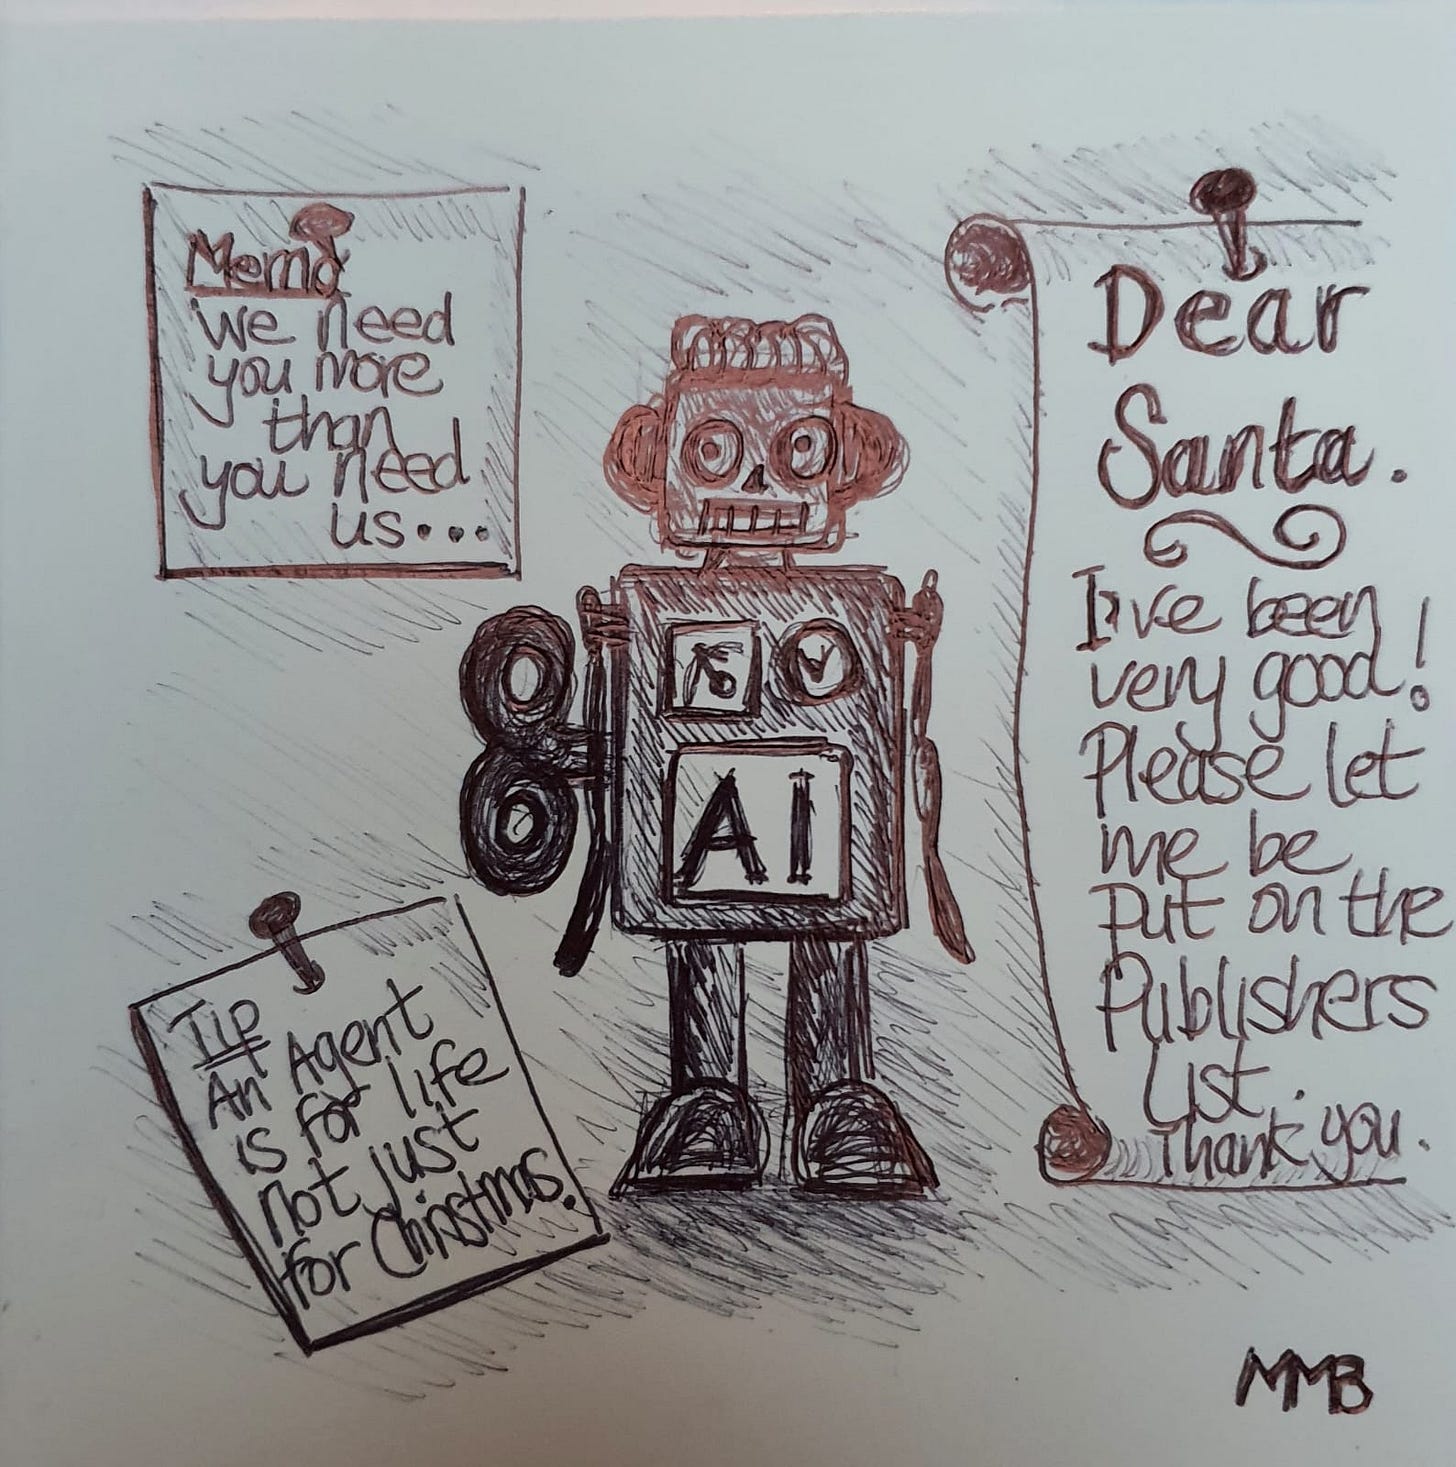 Memo
we need
you more
than
you need
us...
Dear
Santa.
I've been
very good!
Please let
me be
put on the
Publishers
List.
Thank you.
AI
Tip
An Agent
is for life
not just
for Christmas.
MMB